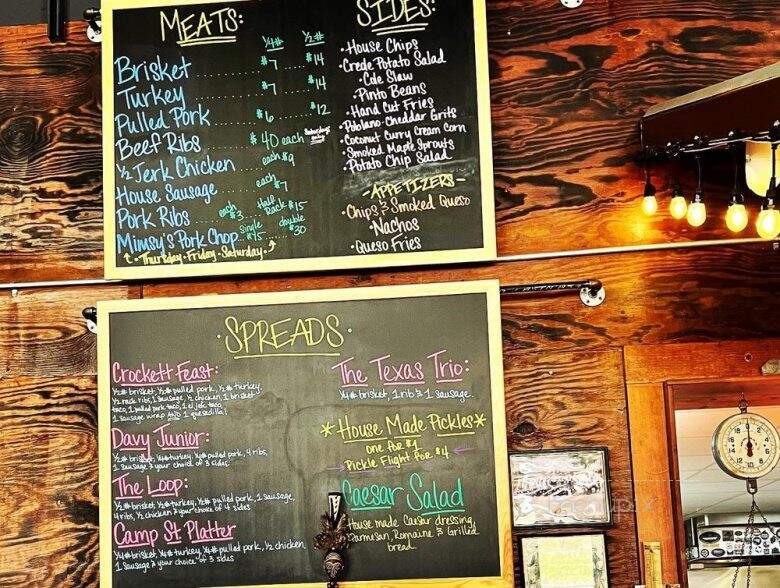 MEATS:
1/4# 1/2#
Brisket $7 $14
Turkey $7 $14
Pulled Pork $6 $12
Beef Ribs $40 each
1/2 Jerk Chicken each $9
House Sausage each $7
Pork Ribs each $3 Half Rack $15
Mimsy's Pork Chop single $15 double $30
Thursday · Friday · Saturday
SIDES:
·House Chips
·Creole Potato Salad
·Cole Slaw
·Pinto Beans
·Hand Cut Fries
·Poblano-Cheddar Grits
·Coconut Curry Cream Corn
·Smoked Maple Sprouts
·Potato Chip Salad
·APPETIZERS·
·Chips & Smoked Queso
·Nachos
·Queso Fries
·SPREADS·
Crockett Feast:
1/2# brisket, 1/2# pulled pork, 1/2# turkey,
1/2 rack ribs, 1 sausage, 1/2 chicken, 1 brisket
taco, 1 pulled pork taco, 1 el jefe taco,
1 sausage wrap AND 1 quesadilla!
Davy Junior:
1/2# brisket, 1/4# turkey, 1/4# pulled pork, 4 ribs,
1 sausage & your choice of 3 sides
The Loop:
1/2# brisket, 1/2# turkey, 1/2# pulled pork, 1 sausage,
4 ribs, 1/2 chicken & your choice of 4 sides
Camp St Platter
1/4# brisket, 1/4# turkey, 1/4# pulled pork, 1/2 chicken
1 sausage & your choice of 3 sides
The Texas Trio:
1/4# brisket, 1 rib & 1 sausage.
*House Made Pickles*
one for $1
Pickle Flight for $4
Caesar Salad
House made Caesar dressing,
Parmesan, Romaine & Grilled
bread.